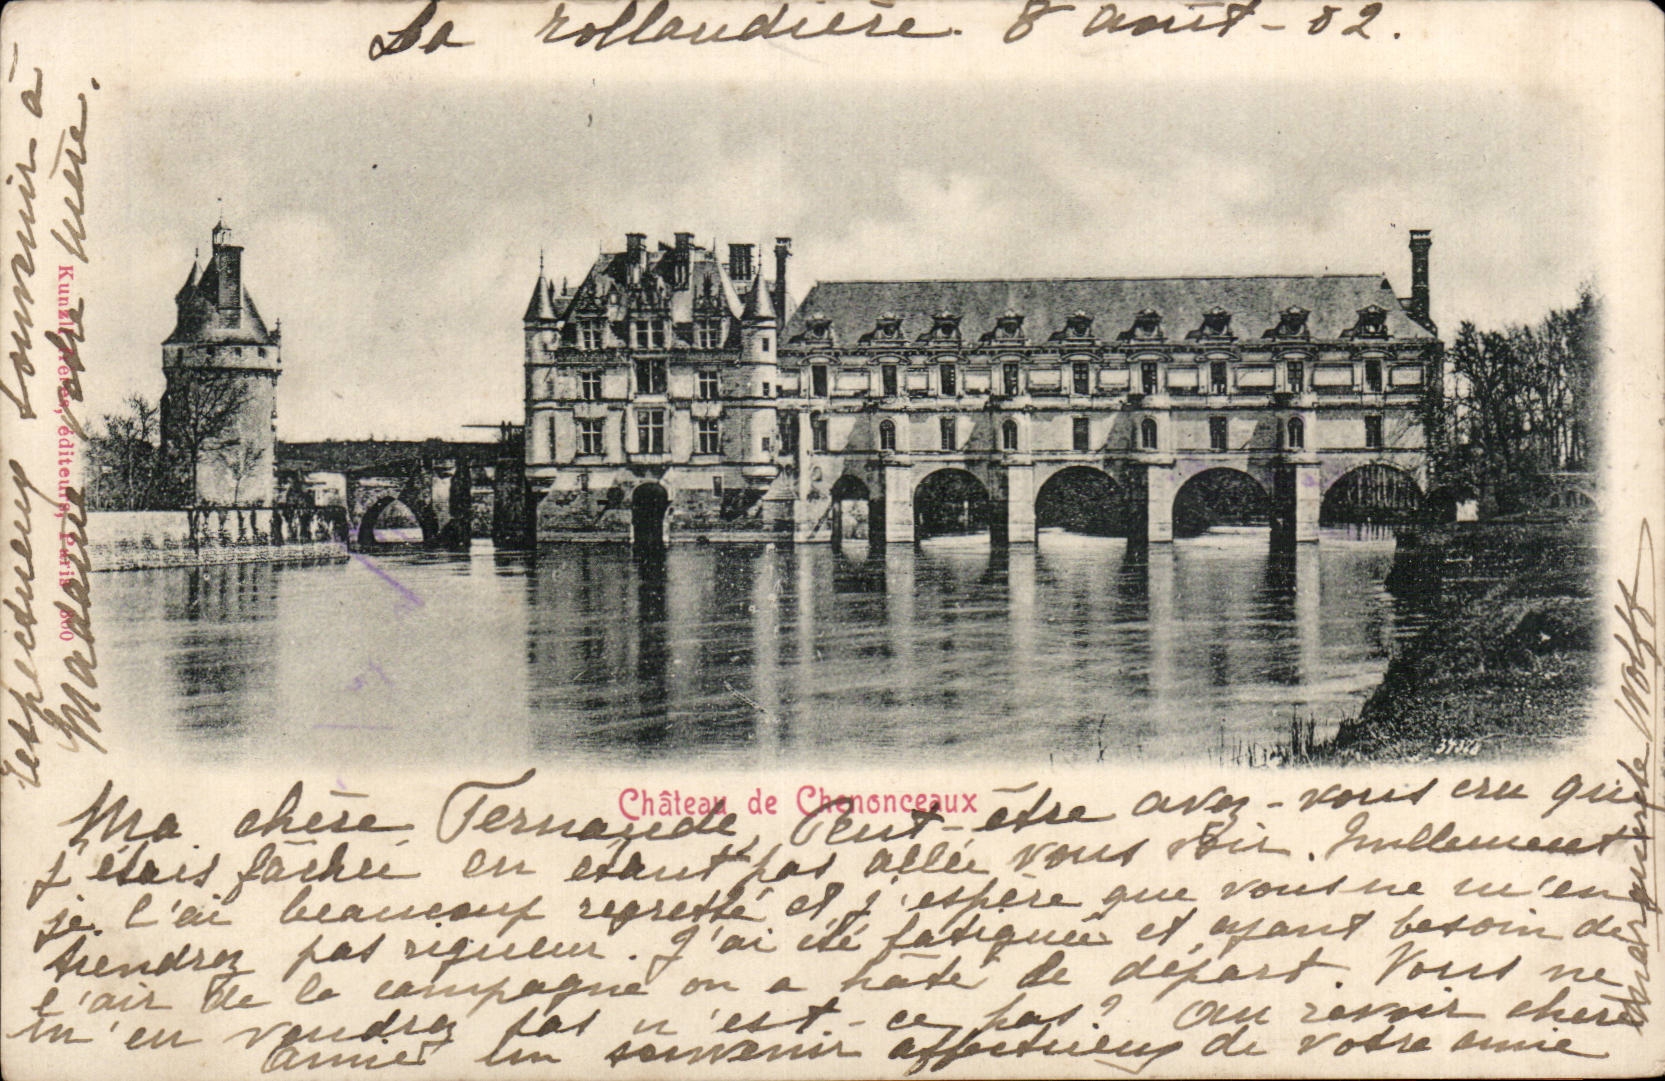 La Rollandière. 8 août - 02.
Château de Chenonceaux
Ma chère Fernande, Peut-être avez-vous cru que
j'étais fâchée en étant pas allée vous voir. Nullement
je l'ai beaucoup regretté et j'espère que vous ne m'en
tiendrez pas rigueur. J'ai été fatiguée et ayant besoin de
l'air de la campagne on a hâté le départ. Vous ne
m'en voudrez pas n'est-ce pas? Au revoir chère
amie un souvenir affectueux de votre amie
Marguerite Wolff
respectueux souvenir à
Madame votre mère.
Kunzli Frères, éditeurs, Paris
34346